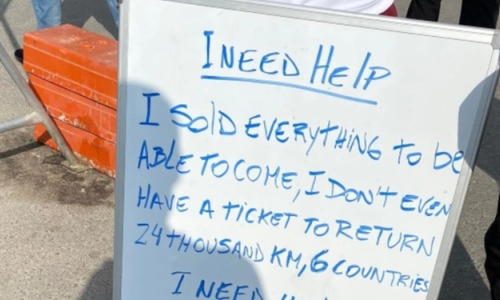 I NEED HElp
I SOlD EVERYTHING to be
ABLE TO COME, I DON'T EVEN
HAVE A TICKET TO RETURN
24 THOUSAND KM, 6 COUNTRIES
I NEED